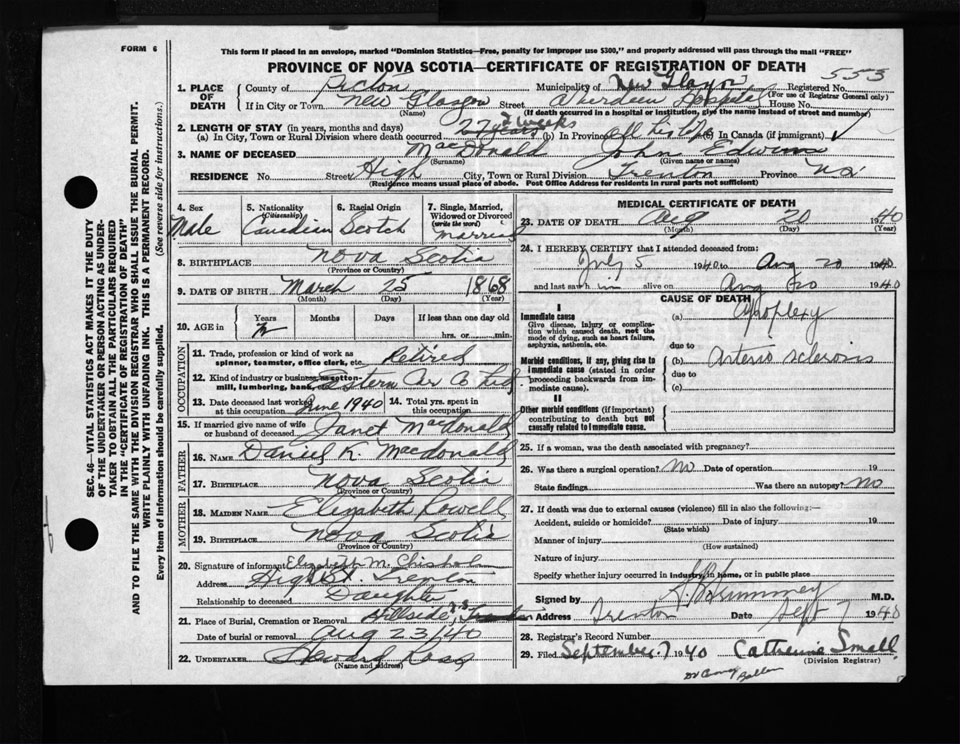 FORM 6
This form if placed in an envelope, marked "Dominion Statistics—Free, penalty for improper use $300," and properly addressed will pass through the mail "FREE"
PROVINCE OF NOVA SCOTIA—CERTIFICATE OF REGISTRATION OF DEATH
553
1. PLACE OF DEATH County of Pictou Municipality of New Glasgow Registered No. (For use of Registrar General only)
If in City or Town New Glasgow (Name) Street Aberdeen Hospital House No.
(If death occurred in a hospital or institution, give the name instead of street and number)
2. LENGTH OF STAY (in years, months and days)
(a) In City, Town or Rural Division where death occurred weeks (b) In Province all his life (c) In Canada (if immigrant)
3. NAME OF DECEASED MacDonald (Surname) John (Given name or names)
RESIDENCE No. Street High City, Town or Rural Division Trenton Province NS
(Residence means usual place of abode. Post Office Address for residents in rural parts not sufficient)
4. Sex Male
5. Nationality (Citizenship) Canadian
6. Racial Origin Scotch
7. Single, Married, Widowed or Divorced (write the word) Married
8. BIRTHPLACE Nova Scotia
(Province or Country)
9. DATE OF BIRTH March 25 1868
(Month) (Day) (Year)
10. AGE in Years Months Days If less than one day
hrs. or min.
OCCUPATION
11. Trade, profession or kind of work as spinner, teamster, office clerk, etc. Retired
12. Kind of industry or business, as cotton-mill, lumbering, bank,
13. Date deceased last worked at this occupation June 1940 14. Total yrs. spent in this occupation
15. If married give name of wife or husband of deceased Janet MacDonald
FATHER
16. NAME Daniel K. Macdonald
17. BIRTHPLACE Nova Scotia
(Province or Country)
MOTHER
18. MAIDEN NAME Elizabeth Rowell
19. BIRTHPLACE Nova Scotia
(Province or Country)
20. Signature of informant Elizabeth M. Chisholm
Address High St. Trenton
Relationship to deceased Daughter
21. Place of Burial, Cremation or Removal Hillside
Date of burial or removal Aug 23/40
22. UNDERTAKER Ross
(Name and address)
MEDICAL CERTIFICATE OF DEATH
23. DATE OF DEATH Aug 20 1940
(Month) (Day) (Year)
24. I HEREBY CERTIFY that I attended deceased from:
July 5 1940 to Aug 20 1940
and last saw him alive on Aug 20 1940
CAUSE OF DEATH
I
Immediate cause
Give disease, injury or complication which caused death, not the mode of dying, such as heart failure, asphyxia, asthenia, etc.
(a) Apoplexy
due to
Morbid conditions, if any, giving rise to immediate cause (stated in order proceeding backwards from immediate cause).
(b) Arterio sclerosis
due to
(c)
II
Other morbid conditions (if important) contributing to death but not causally related to immediate cause.
25. If a woman, was the death associated with pregnancy?
26. Was there a surgical operation? No Date of operation 19
State findings Was there an autopsy? No
27. If death was due to external causes (violence) fill in also the following:—
Accident, suicide or homicide? Date of injury 19
(State which)
Manner of injury
(How sustained)
Nature of injury
Specify whether injury occurred in industry, in home, or in public place
Signed by M.D.
Address Trenton Date Sept 7 1940
28. Registrar's Record Number
29. Filed September 7 1940 Catherine Small
(Division Registrar)
SEC. 46—VITAL STATISTICS ACT MAKES IT THE DUTY
OF THE UNDERTAKER OR PERSON ACTING AS UNDERTAKER
TO OBTAIN ALL THE PARTICULARS REQUIRED
IN THE "CERTIFICATE OF REGISTRATION OF DEATH"
AND TO FILE THE SAME WITH THE DIVISION REGISTRAR WHO SHALL ISSUE THE BURIAL PERMIT.
WRITE PLAINLY WITH UNFADING INK. THIS IS A PERMANENT RECORD.
Every item of information should be carefully supplied. (See reverse side for instructions.)